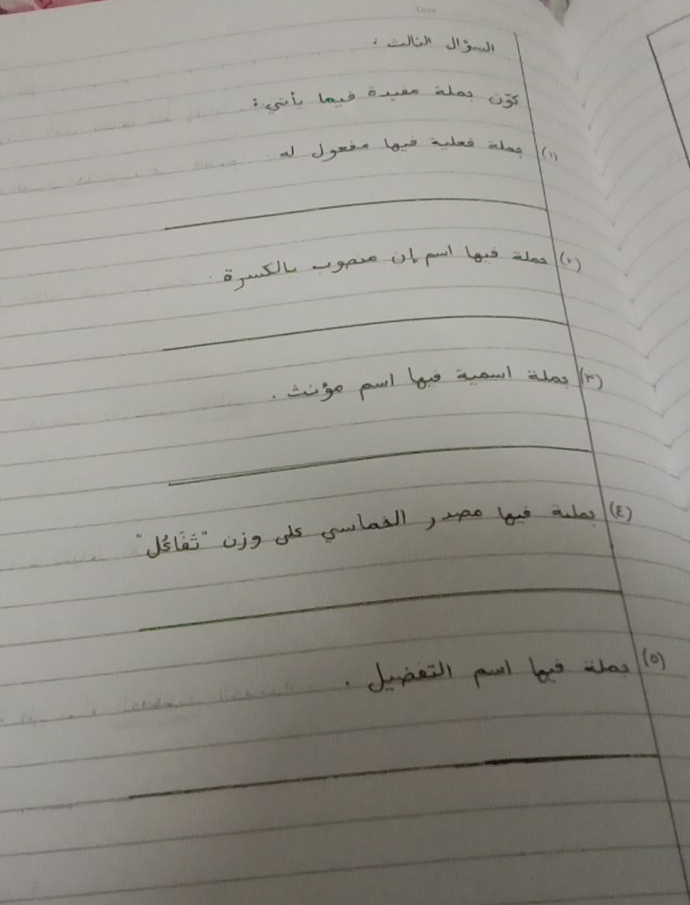 السؤال الثالث :
كوّن جملة مفيدة فيما يأتي :
(١) جملة فعلية فيها مفعول له .
(٢) جملة فيها اسم إن منصوب بالكسرة .
(٣) جملة اسمية فيها اسم مؤنث .
(٤) جملة فيها مصدر الخماسي على وزن "تَفَاعُل"
(٥) جملة فيها اسم التفضيل .